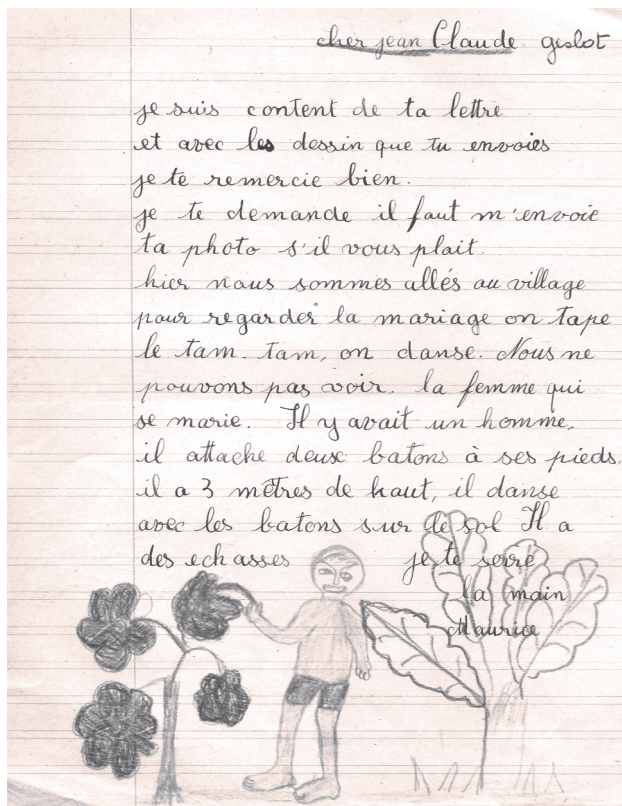 cher jean Claude geslot
je suis content de ta lettre
et avec les dessin que tu envoies
je te remercie bien.
je te demande il faut m'envoie
ta photo s'il vous plait.
hier nous sommes allés au village
pour regarder la mariage on tape
le tam-tam, on danse. Nous ne
pouvons pas voir. la femme qui
se marie. Il y avait un homme.
il attache deux batons à ses pieds.
il a 3 mètres de haut, il danse
avec les batons sur de sol Il a
des echasses je te serre
la main
Maurice